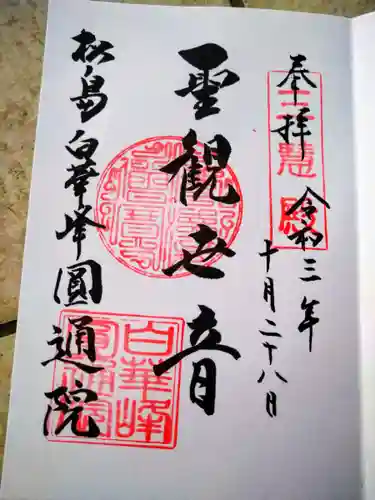 奉拝
令和三年
十月二十八日
聖観世音
松島白華峰圓通院
白華峰
圓通院